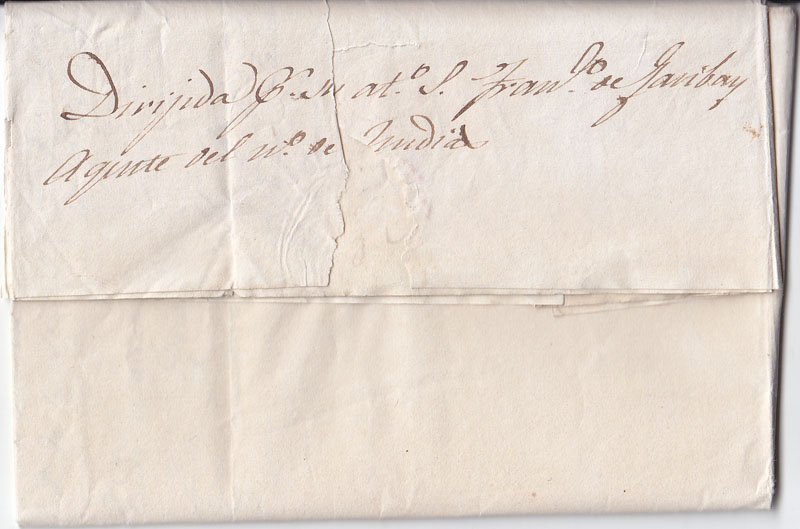 Dirijida Pr. su at.º S. Fran.co de Garibay
Agente del n.º de Indias